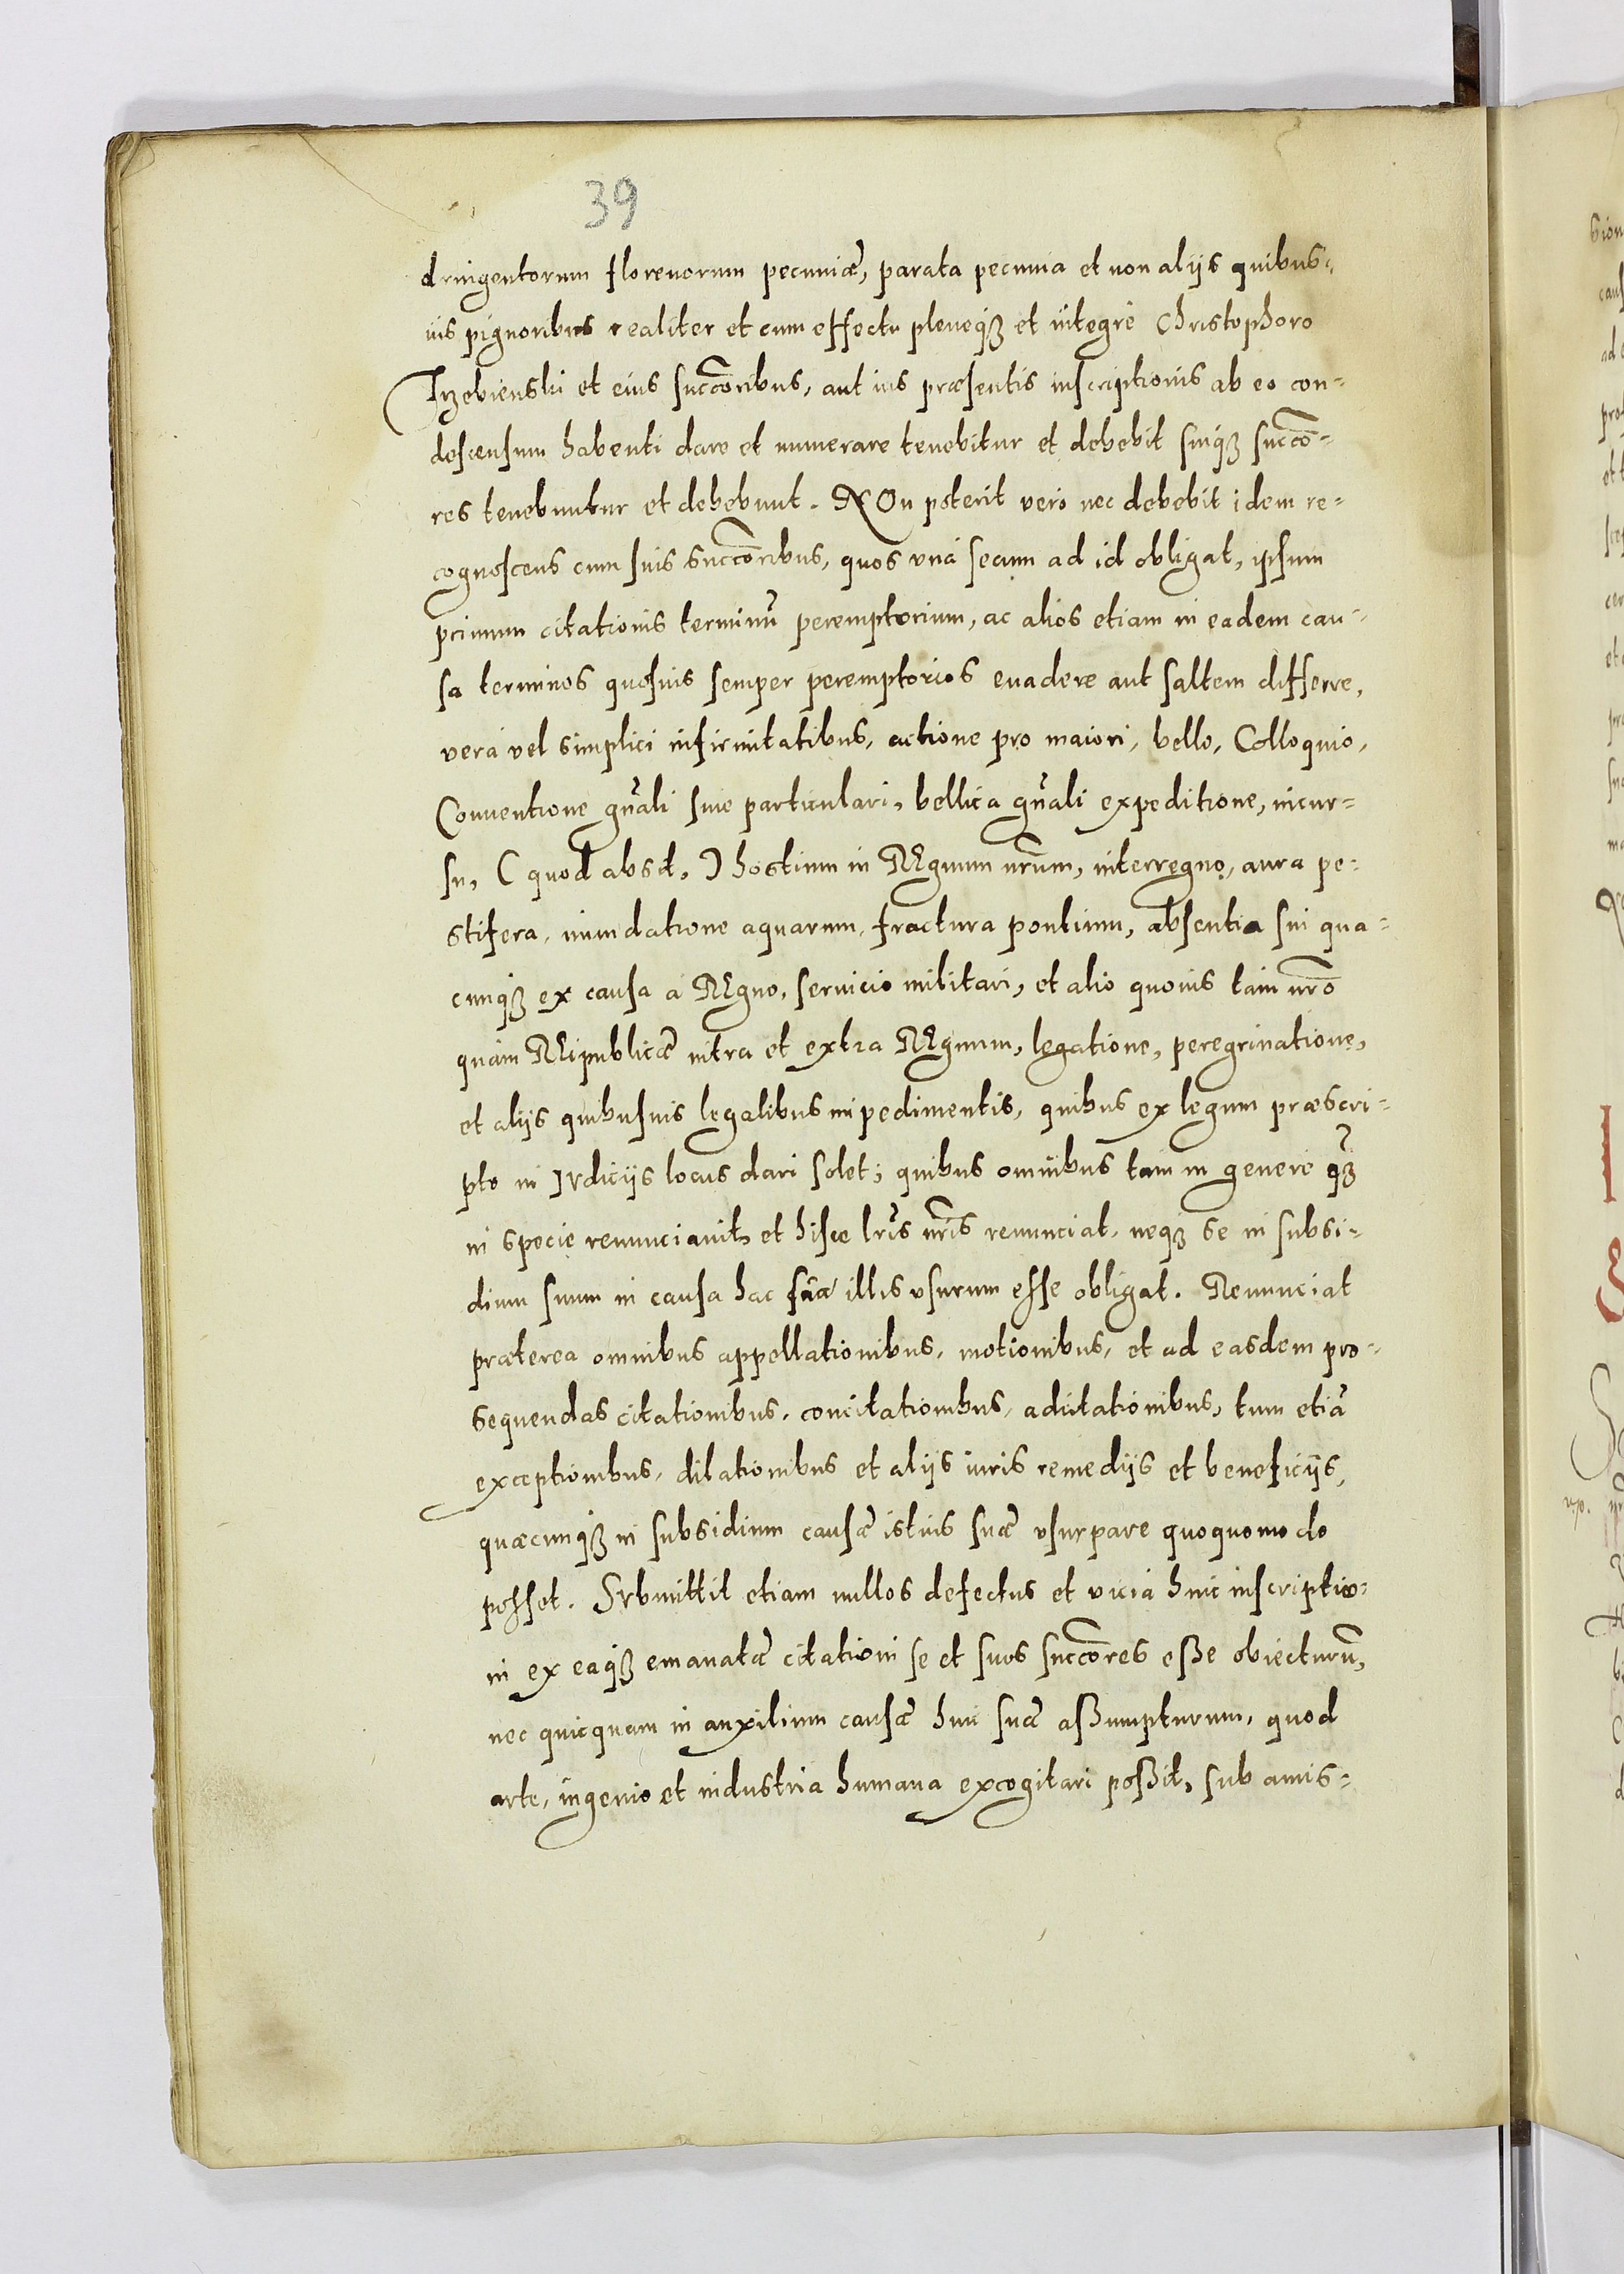 39
dringentorum florenorum pecuniæ, parata pecunia et non alijs quibus=
uis pignoribus realiter et cum effectu pleneqꝫ et integrè Christophoro
Trzebienski et eius succōribus, aut ius præsentis inscriptionis ab eo con=
descensum habenti dare et numerare tenebitur et debebit suiqꝫ succo=
res tenebuntur et debebunt. NOn poterit vero nec debebit idem re=
cognoscens cum suis succōribus, quos vnà secum ad id obligat, ipsum
primum citationis terminū peremptorium, ac alios etiam in eadem cau=
sa terminos quosuis semper peremptorios euadere aut saltem differre,
verà vel simplici infirmitatibus, actione pro maiori, bello, Colloquio,
Conuentione gn̄ali siue particulari, bellica gn̄ali expeditione, incur=
su, (quod absit,) hostium in REgnum nr̄um, interregno, aura pe=
stifera, inundatione aquarum, fractura pontium, absentia sui qua=
cunqꝫ ex causa a REgno, seruicio militari, et alio quouis tam nr̄o
quàm REipublicæ intra et extra REgnum, legatione, peregrinatione,
et alijs quibusuis legalibus impedimentis, quibus ex legum præscri=
pto in IVdicijs locus dari solet; quibus omnibus tam in genere qꝫ̄
in specie renunciauit, et hisce lr̄is nr̄is renunciat, neqꝫ se in subsi=
dium suum in causa hac illis vsurum esse obligat. Renunciat
præterea omnibus appellationibus, motionibus, et ad easdem pro=
sequendas citationibus, concitationibus, adcitationibus, tum etiā
exceptionibus, dilationibus et alijs iuris remedijs et beneficijs,
quæcunqꝫ in subsidium causæ istius suæ vsurpare quoquomodo
posset. SVbmittit etiam nullos defectus et vicia huic inscriptio=
ni ex eaqꝫ emanatæ citationi se et suos succōres eße obiecturū,
nec quicquam in auxilium causæ hui suæ aßumpturum, quod
arte, ingenio et industria humana excogitari poßit, sub amis=